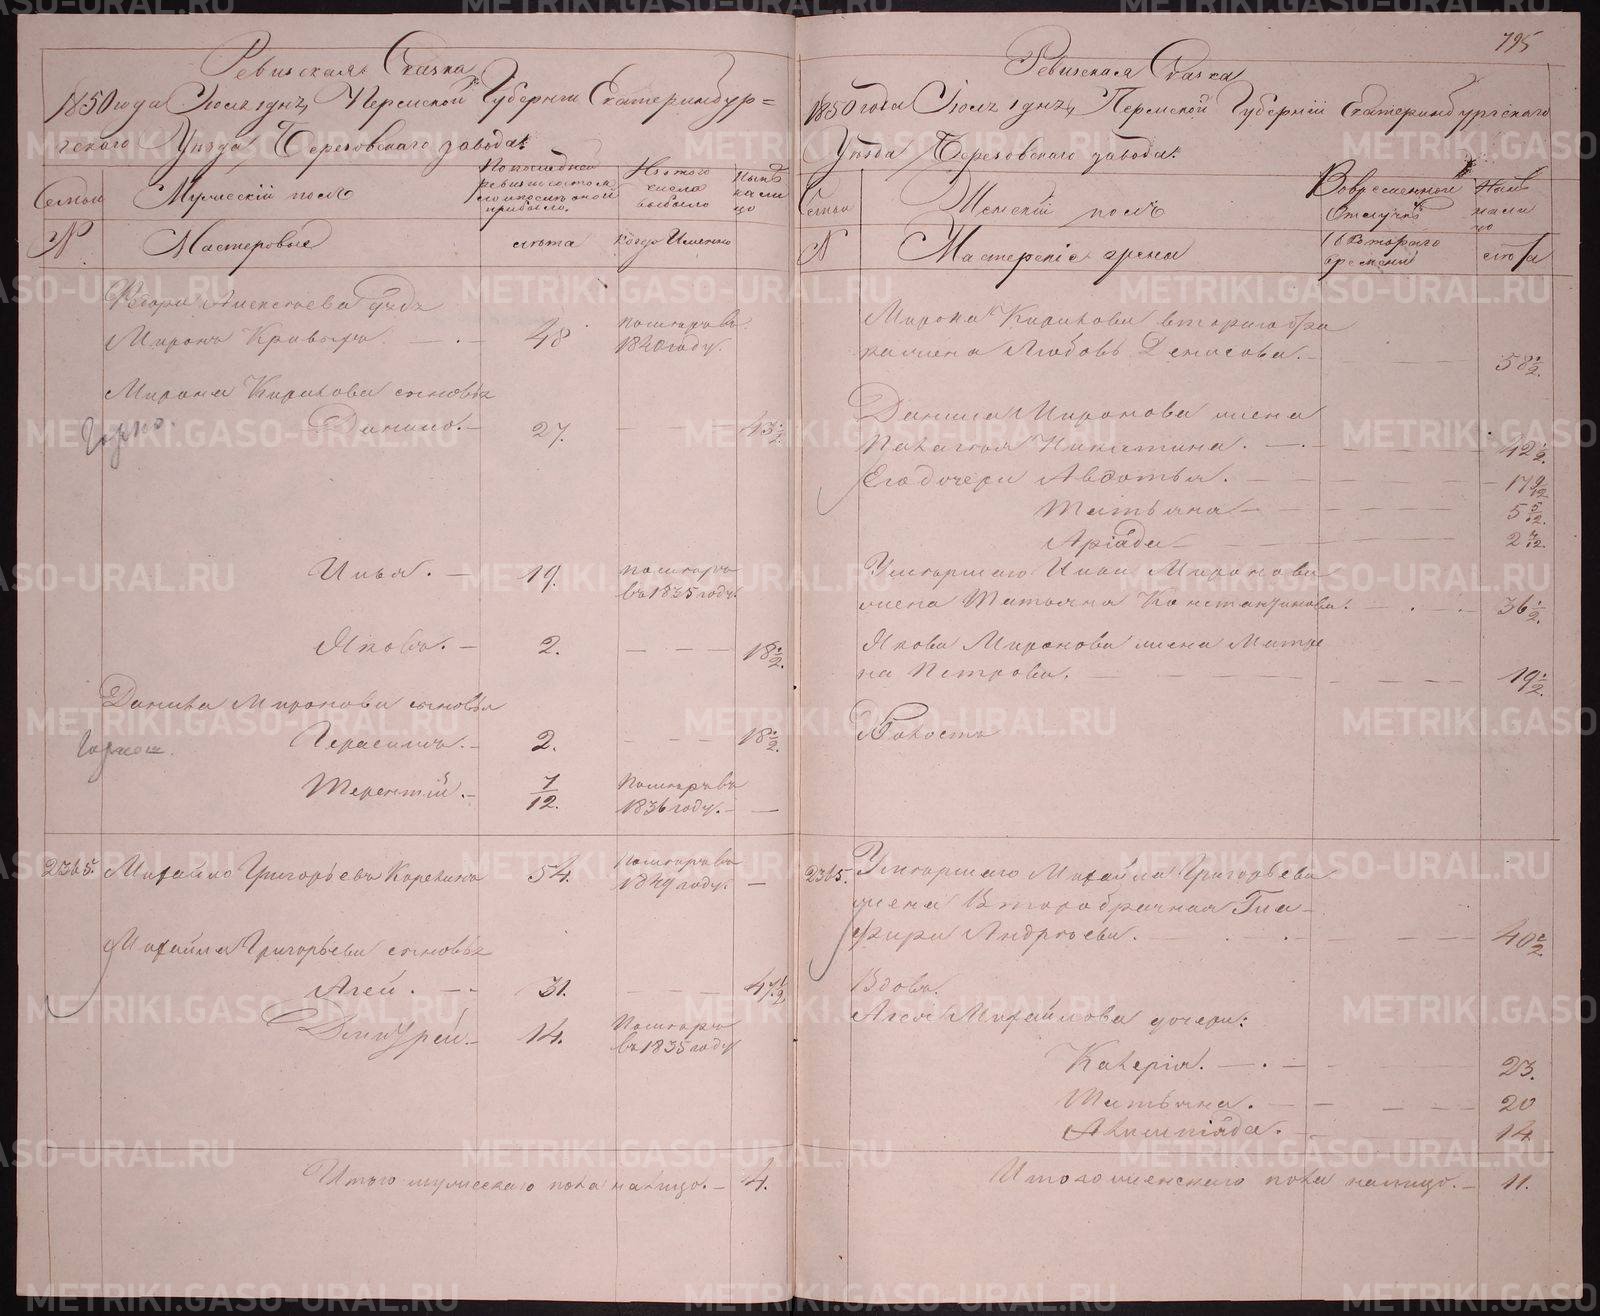 795
Ревизская Сказка
1850 года Июля 1 дня, Пермской Губернии Екатеринбур=
гского Уѣзда Березовскаго завода:
Семьи
Мужескій полъ
По последней ревизіи состояло и после оной прибыло.
Изъ того числа выбыло
Нынѣ на лицо
№
Мастеровые
лѣта
когда именно
Алексѣева
Миронъ
48
помѣръ въ 1840 году.
Мирона Кирилова сыновья
Данило. 27. 43 1/2.
Илья. 19. померъ въ 1835 году.
Яковъ. 2. 18 1/2.
Данила Миронова сыновья
Герасимъ. 2. 18 1/2.
Терентій. 7/12. Померъ въ 1836 году.
2365. Михайло Григорьевъ Карелинъ 54. Померъ въ 1849 году.
Михайла Григорьева сыновья
Агей. 31. 47 1/2
Дмитрей. 14. Померъ въ 1835 году
Итого мужескаго пола на лицо. 4.
Ревизская Сказка
1850 года Июля 1 дня, Пермской Губерніи Екатеринбургскаго
Уѣзда Березовскаго завода:
Семьи
Женскій полъ
Во временной отлучкѣ
Нынѣ на лицо
№
Мастерскіе жена
съ котораго времени
лѣта
Мирона Кирилова второбра
жена Любовь Денисова. 58 1/2.
Данила Миронова жена
Пелагея Никитина. 42 1/2.
Его дочери Авдотья. 17 9/12
Татьяна 5 5/12.
2 7/12.
Умершаго Ильи Миронова
жена Татьяна Константинова. 36 1/2.
Якова Миронова жена Матре
на Петрова. 19 1/2.
Холостъ
2365. Умершаго Михайла Григорьева
жена Второбрачная Гла-
фира Андреева. 40 1/2
Вдовъ.
Агея Михайлова дочери:
Калерія. 23.
Татьяна. 20
14
Итого женскаго пола на лицо. 11.
METRIKI.GASO-URAL.RU